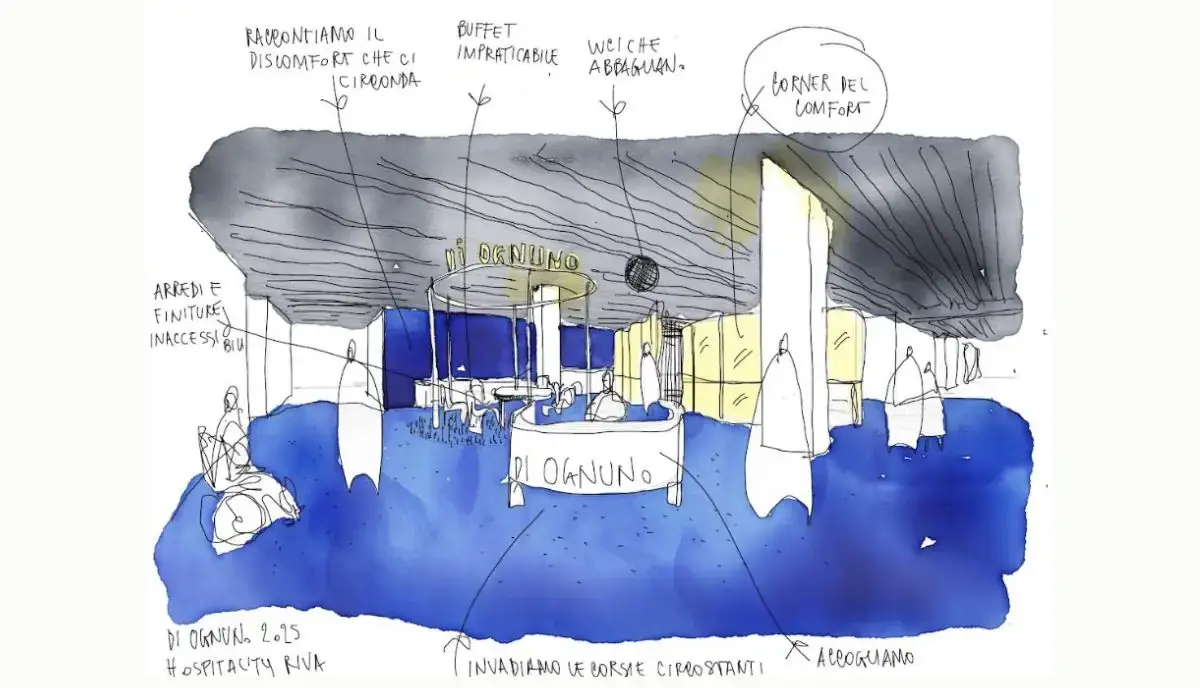 RACCONTIAMO IL
DISCOMFORT CHE CI
CIRCONDA
BUFFET
IMPRATICABILE
LUCI CHE
ABBAGLIANO
CORNER DEL
COMFORT
DI OGNUNO
ARREDI E
FINITURE
INACCESSIBILI
DI OGNUNO
DI OGNUNO 2025
HOSPITALITY RIVA
INVADIAMO LE CORSIE CIRCOSTANTI
ACCOGLIAMO